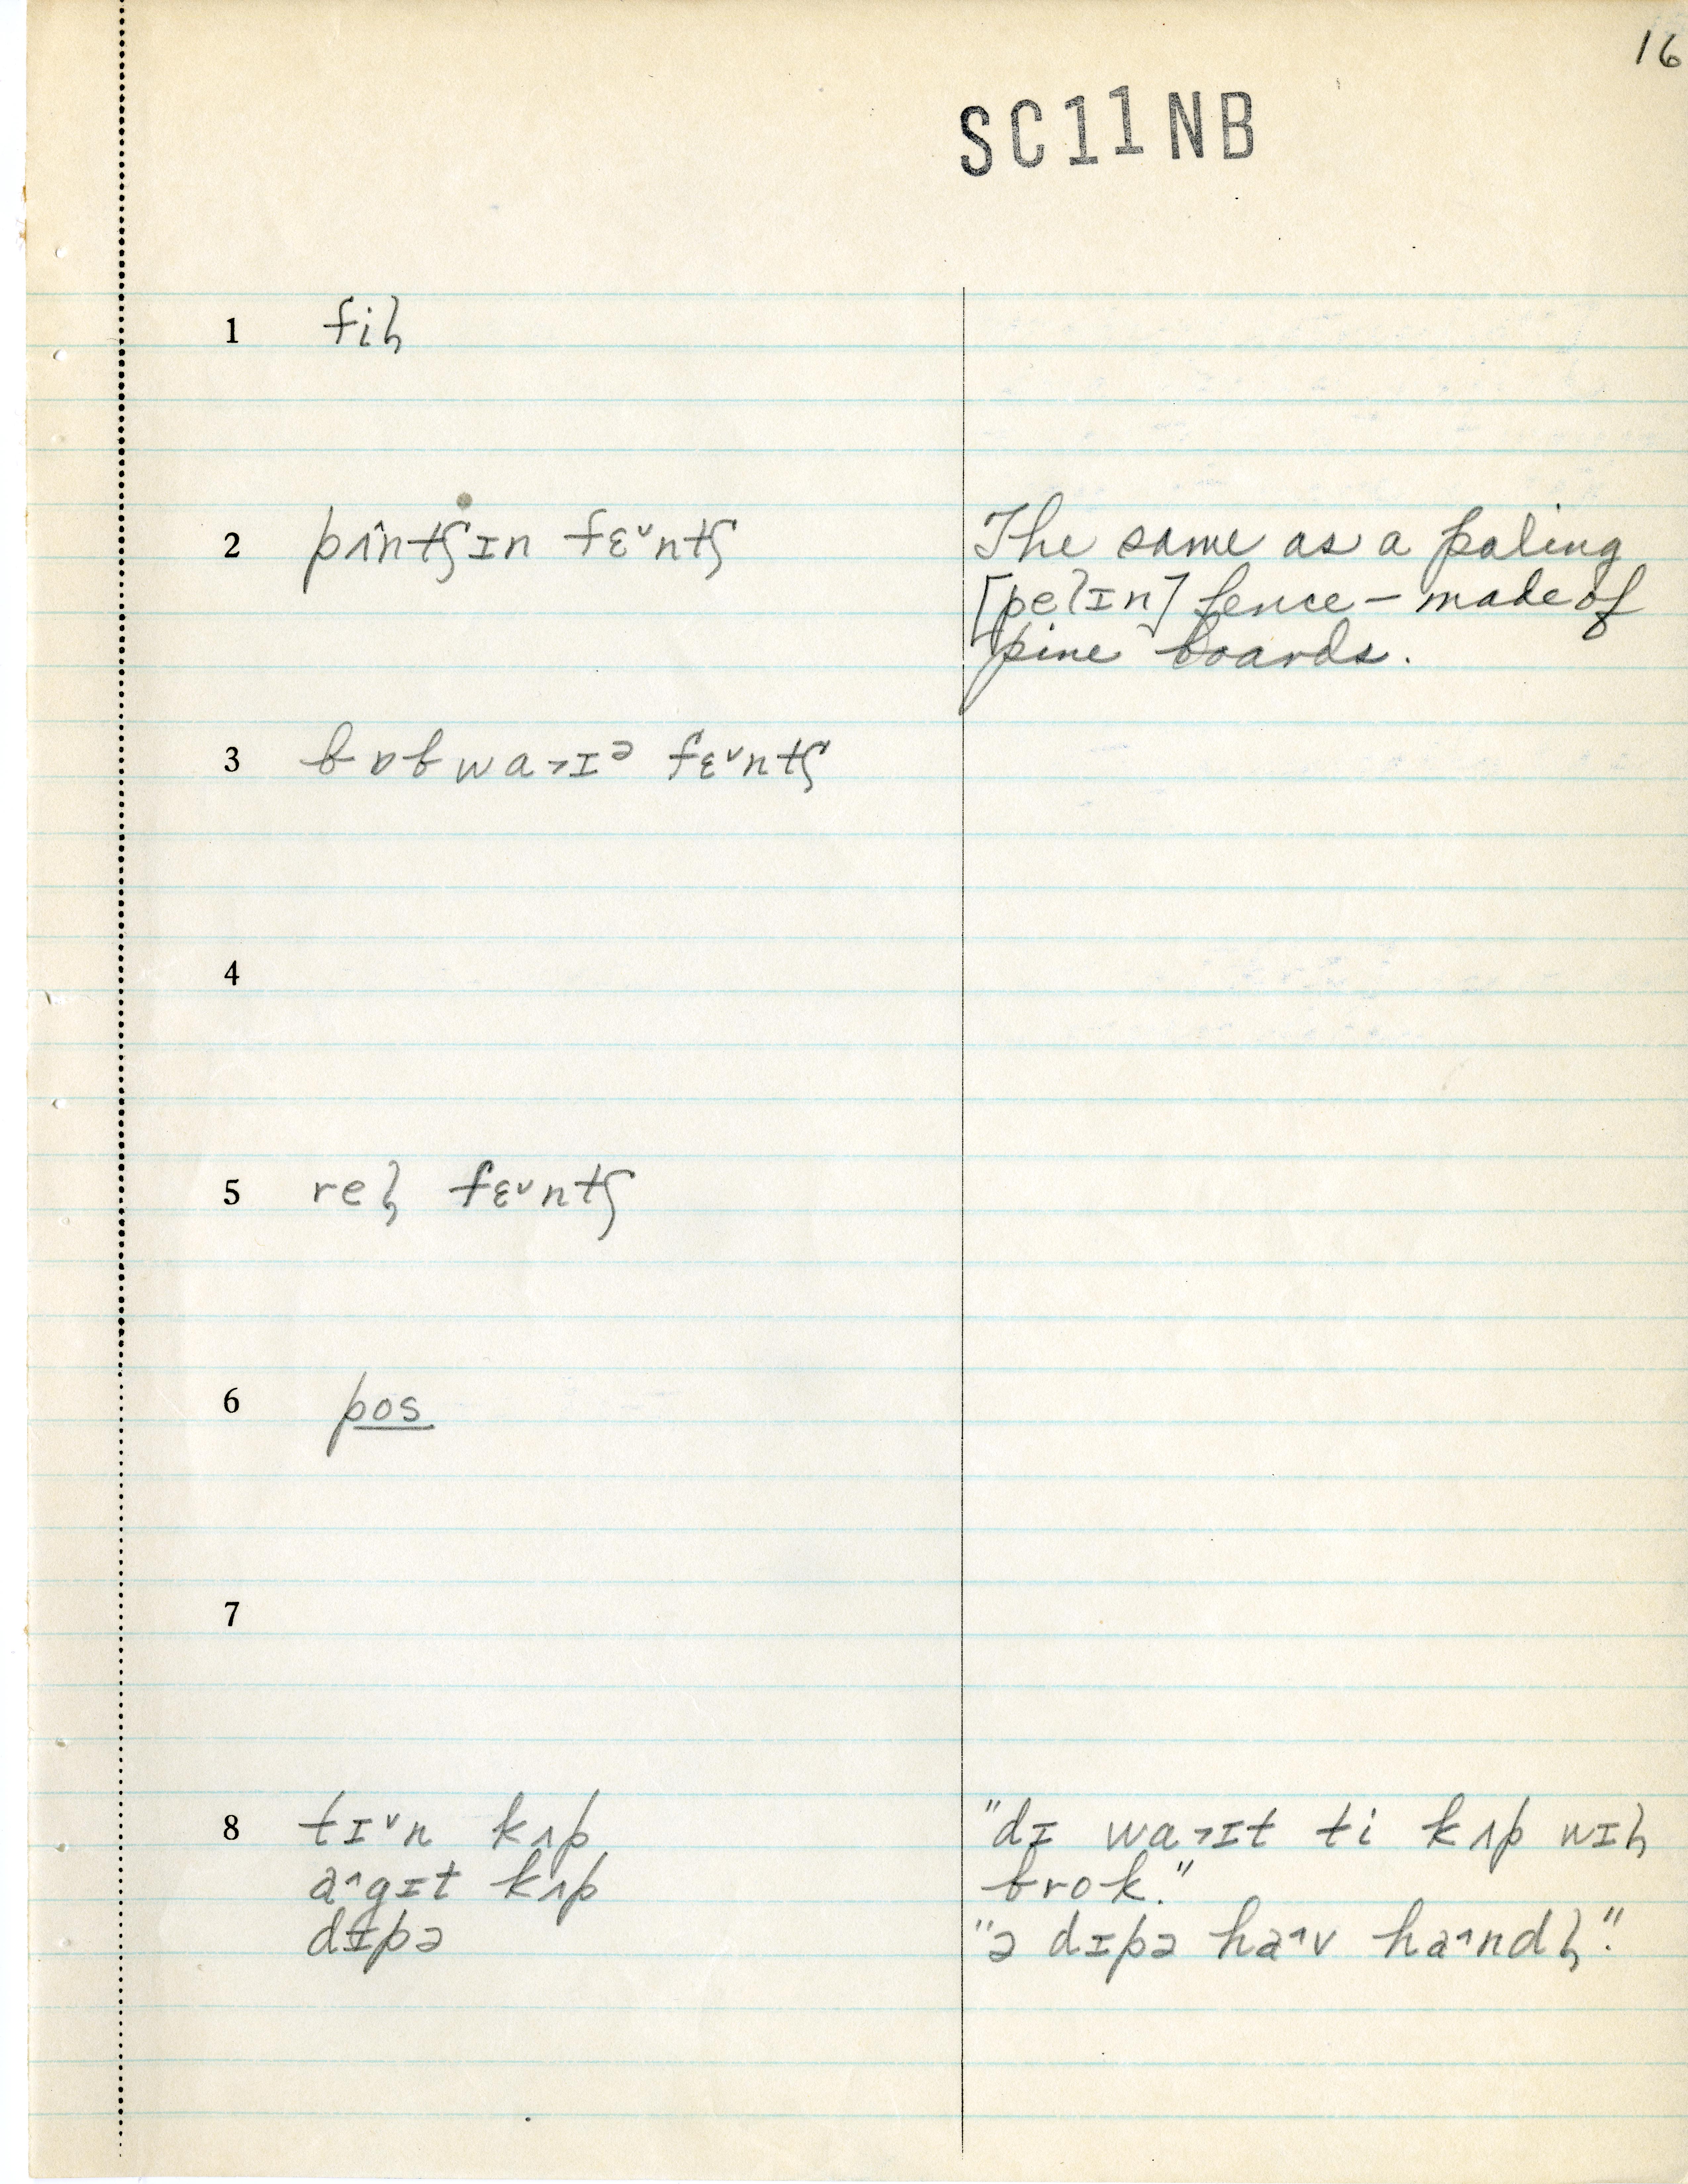 16
SC11NB
1 fiɫ̩
2 pʌ̂ntʃɪn fɛ˅ntʃ
The same as a paling
[pelɪn] fence – made of
pine boards.
3 bɒbwa˃ɪᵊ fɛ˅ntʃ
4
5 reɫ̩ fɛ˅ntʃ
6 pos
7
8 tɪ˅n kʌp
"dɪ wa˃ɪt ti kʌp wɪɫ̩
brok."
a˄gɪt kʌp
dɪpə
"ə dɪpə ha˄v ha˄ndɫ̩."